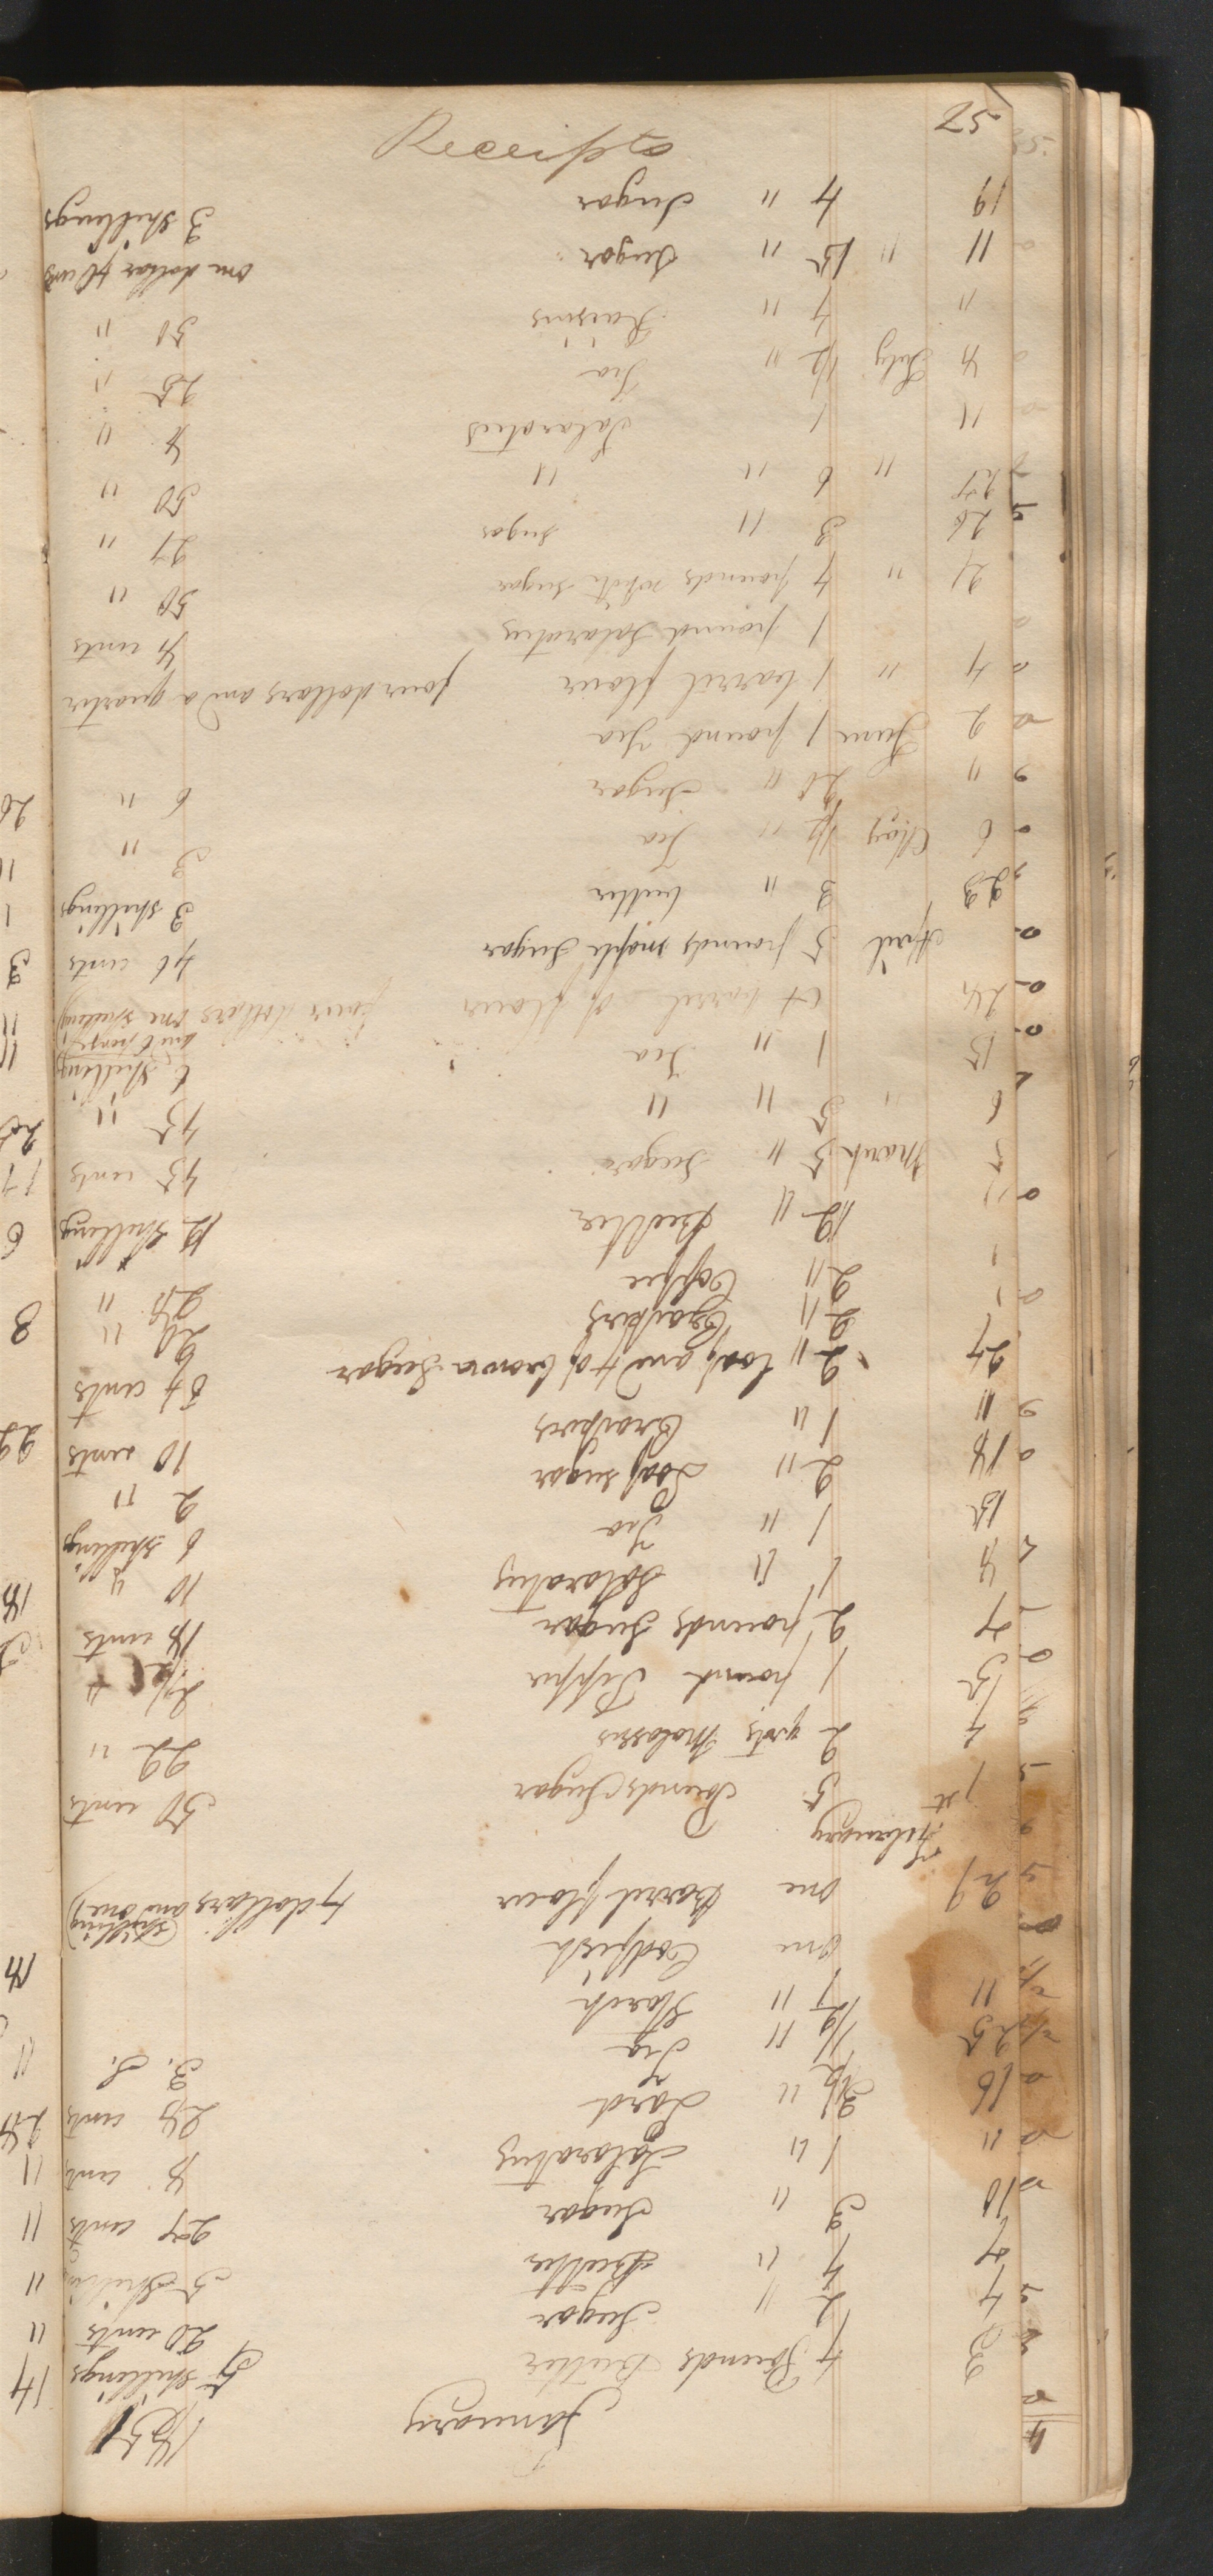 January 1851
2 7 Pounds Butter 5 shillings
4 2 " Sugar 20 cents
7 7 " Butter 5 Shillings
10 3 " Sugar 27 cents
" 1 " Salaratus 8 cents
16 3 1/2 " Lard 28 cents
25 1/2 " Tea 3. S.
" 1/2 " Starch
one Codfish
29 one Barrel flour 7 dollars and one
(shilling)
February
1 st 5 Pounds Sugar 50 cents
4 2 qrts Molasses 22 "
1 pound Pepper
7 2 pounds Sugar 18 cents
1 " Salaratus 10 "
15 1 " Tea 6 shillings
18 2 " Loaf sugar 2 "
" 1 " Crackers 10 cents
27 2 " loaf and 4 of brown Sugar 64 cents
2 " Crackers 20 "
2 " Coffee 28 "
" 12 " Butter 12 Shillings
5 March 5 " Sugar 45 cents
6 " 5 " " 45 "
15 1 " Tea 6 Shillings
and 6 pence
24 A barrel of flour four dollars one shilling
April 5 pounds maple Sugar 46 cents
23 3 " butter 3 shillings
6 May 1/2 " Tea 3 "
" 20 " Sugar 6 "
2 June 1 pound Tea
4 " 1 barrel flour four dollars and a quarter
1 pound Salaratus 8 cents
21 " 4 pounds white sugar 50 "
26 3 " sugar 27 "
" 6 " " 50 "
11 1 Salaratus 8 "
4 July 1/2 " Tea 25 "
" 4 " Raisins 50 "
11 " 15 " Sugar one dollar
19 4 " Sugar 3 Shillings
Receipts
57